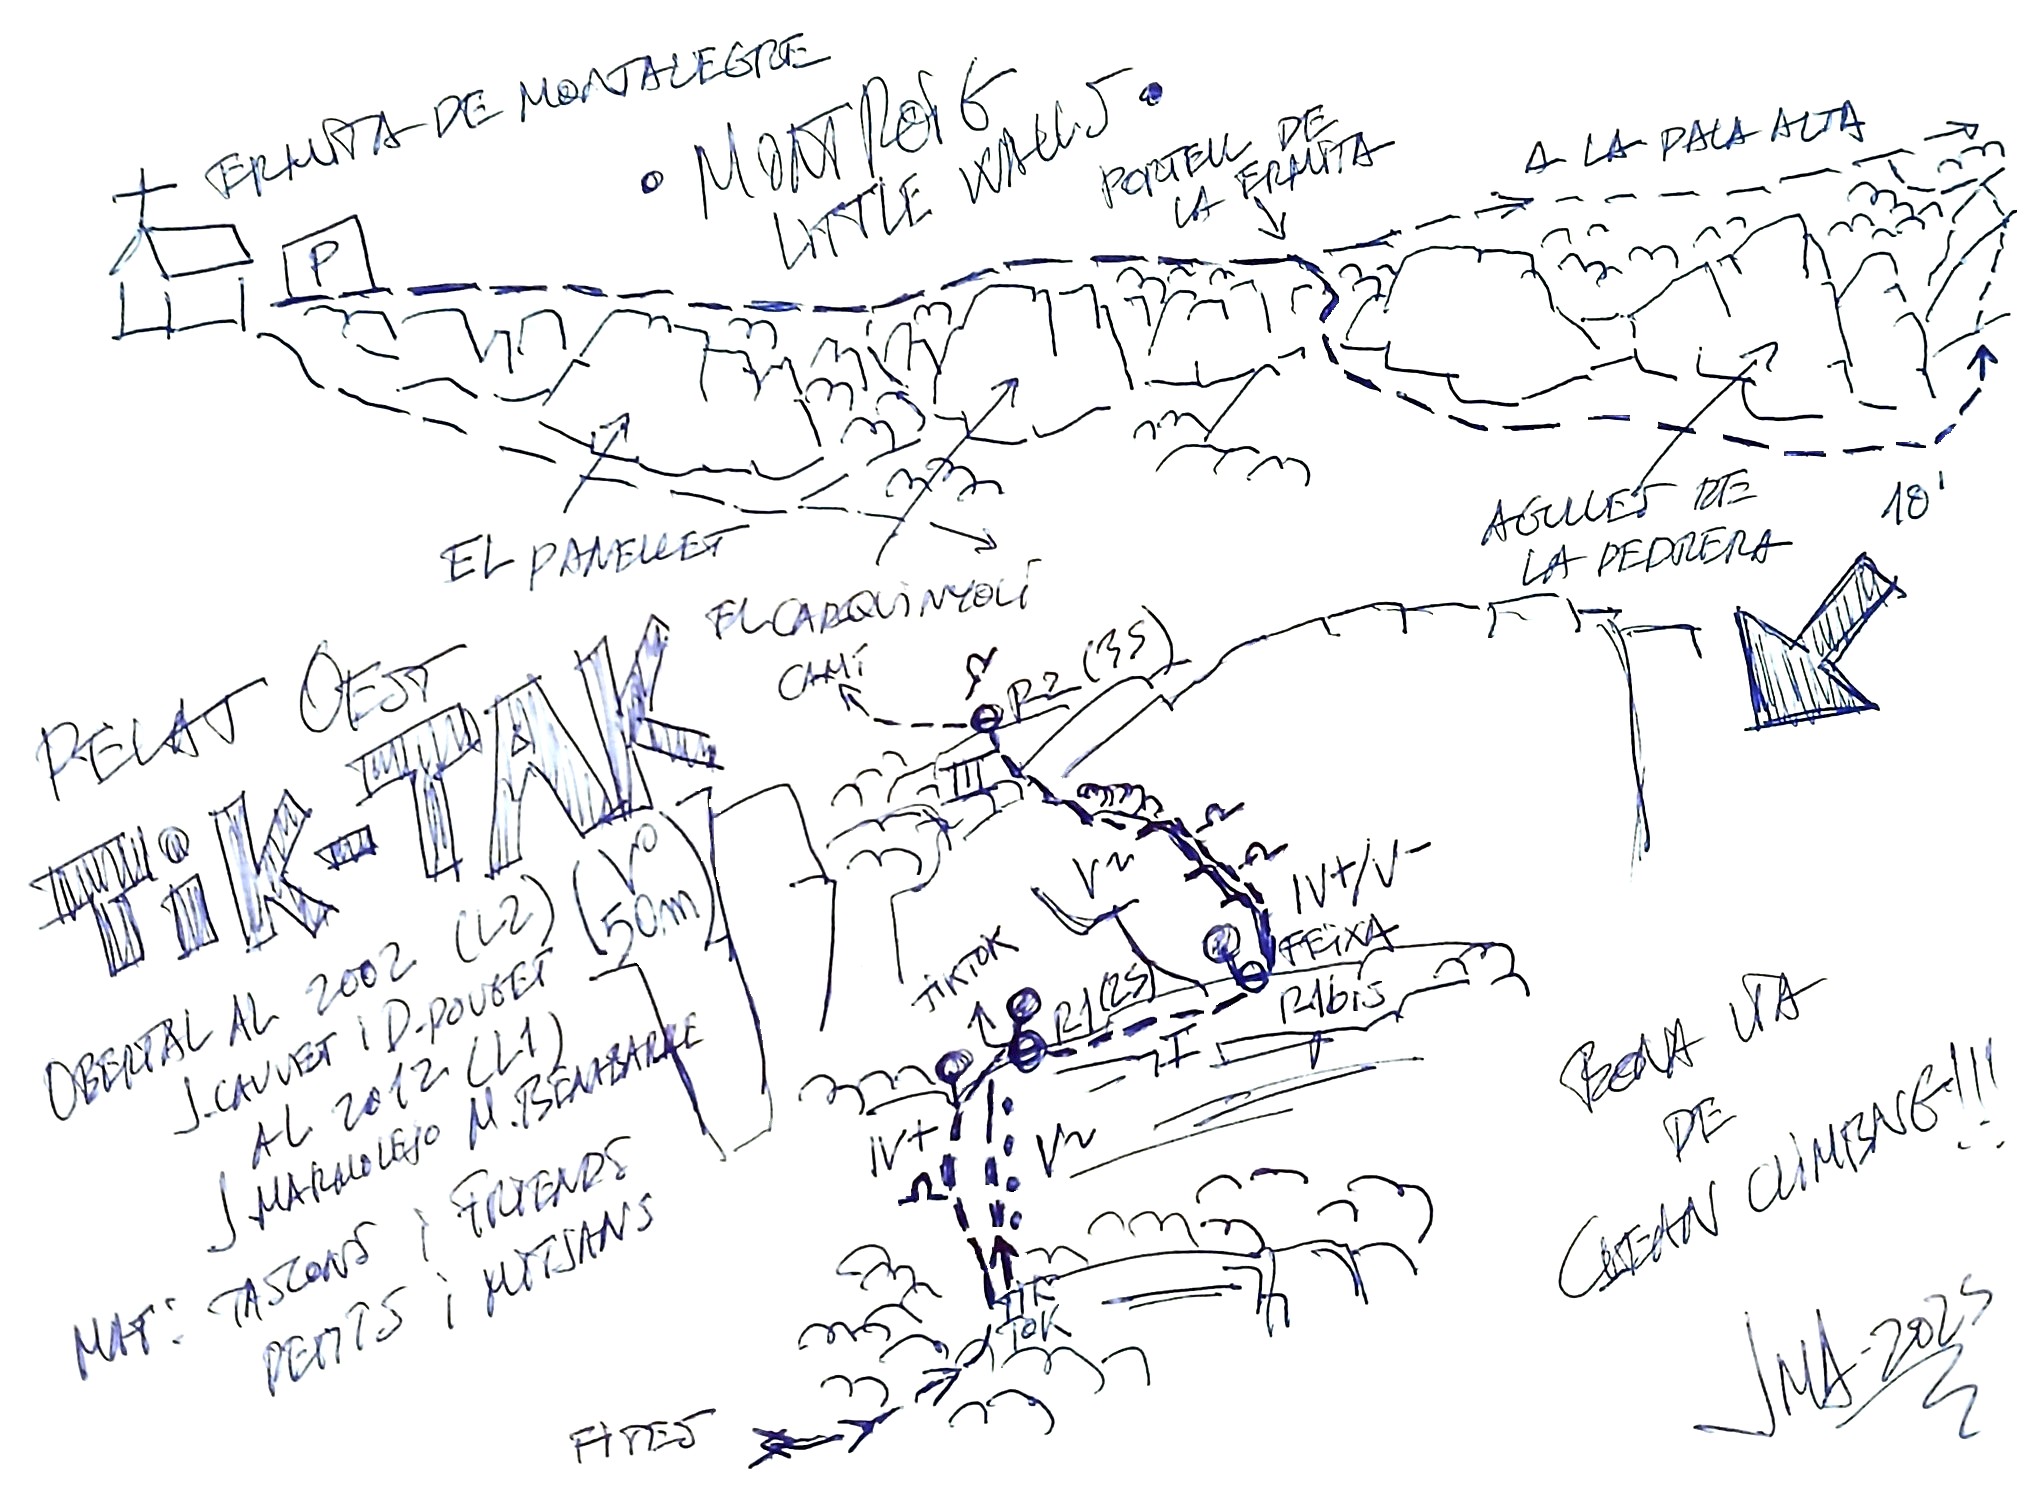 ERMITA DE MONTALEGRE
• MONTROIG
LITTLE WALLS •
PORTELL DE
LA ERMITA
A LA PALA ALTA
P
EL PANELLET
EL CARQUINYOLI
AGULLES DE
LA PEDRERA
10'
PELAT OEST
TiK-TAK
(Vº
50m)
OBERTA AL 2002 (L2)
J.CAUVET i D.POUGET
AL 2012 (L1)
J MARMOLEJO M.BENBARKE
MAT: TASCONS i FRIENDS
PETITS i MITJANS
CAMÍ
R2 (3S)
III
V~
IV+/V-
FEIXA
TIKTOK
R1(2S)
R1bis
I
IV+
V~
TIK
TOK
FITES
BONA VIA
DE
CLEAN CLIMBING!!!
JMA-2025